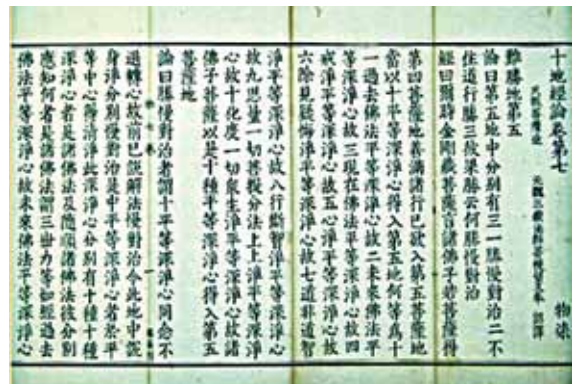 十地經論卷第七 物染
天親菩薩造 元魏三藏法師菩提留支奉 詔譯
難勝地第五
論曰第五地中分別有三一勝慢對治二不
住道行勝三彼果勝云何勝慢對治
經曰爾時金剛藏菩薩言諸佛子若菩薩得
第四菩薩地善滿諸行已欲入第五菩薩地
當以十平等深淨心得入第五地何等為十
一過去佛法平等深淨心故二未來佛法平
等深淨心故三現在佛法平等深淨心故四
戒淨平等深淨心故五心淨平等深淨心故
六除見疑悔淨平等深淨心故七道非道智
淨平等深淨心故八行斷智淨平等深淨心
故九思量一切菩提分法上上淨平等深淨
心故十化度一切眾生淨平等深淨心故諸
佛子菩薩以是十種平等深淨心得入第五
菩薩地
論曰勝慢對治者謂十平等深淨心同念不
退轉心故前已說解法慢對治今此地中說
身淨分別慢對治是中平等深淨心者於平
等中心得清淨此深淨心分別有十種十種
深淨心者是諸佛法及隨順諸佛法彼分別
應知何者是諸佛法謂三世力等如經過去
佛法平等深淨心故未來佛法平等深淨心